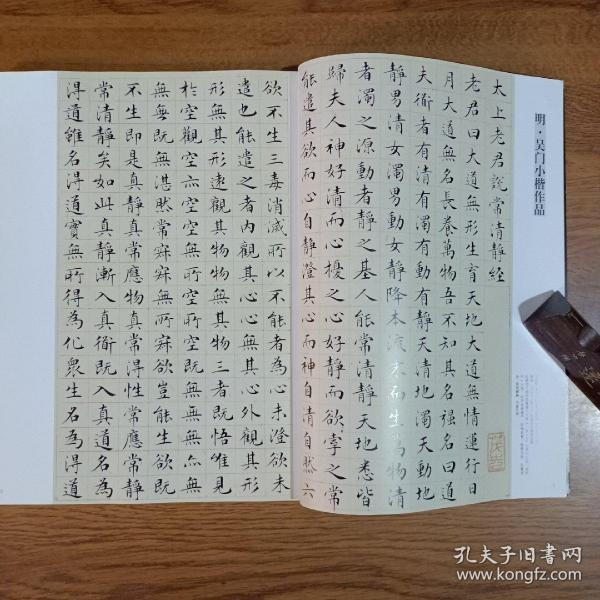 明·吴门小楷作品
太上老君說常清靜經
老君曰大道無形生育天地大道無情運行日
月大道無名長養萬物吾不知其名強名曰道
夫衜者有清有濁有動有靜天清地濁天動地
靜男清女濁男動女靜降本流末而生萬物清
者濁之源動者靜之基人能常清靜天地悉皆
歸夫人神好清而心擾之心好靜而欲牽之常
能遣其欲而心自靜澄其心而神自清自然六
欲不生三毒消滅所以不能者為心未澄欲未
遣也能遣之者內觀其心心無其心外觀其形
形無其形遠觀其物物無其物三者既悟唯見
於空觀空亦空空無所空所空既無無無亦無
無無既無湛然常寂寂無所寂欲豈能生欲既
不生即是真靜真常應物真常得性常應常靜
常清靜矣如此真靜漸入真衜既入真道名為
得道雖名得道實無所得為化衆生名為得道
孔夫子旧书网
www.kongfz.com